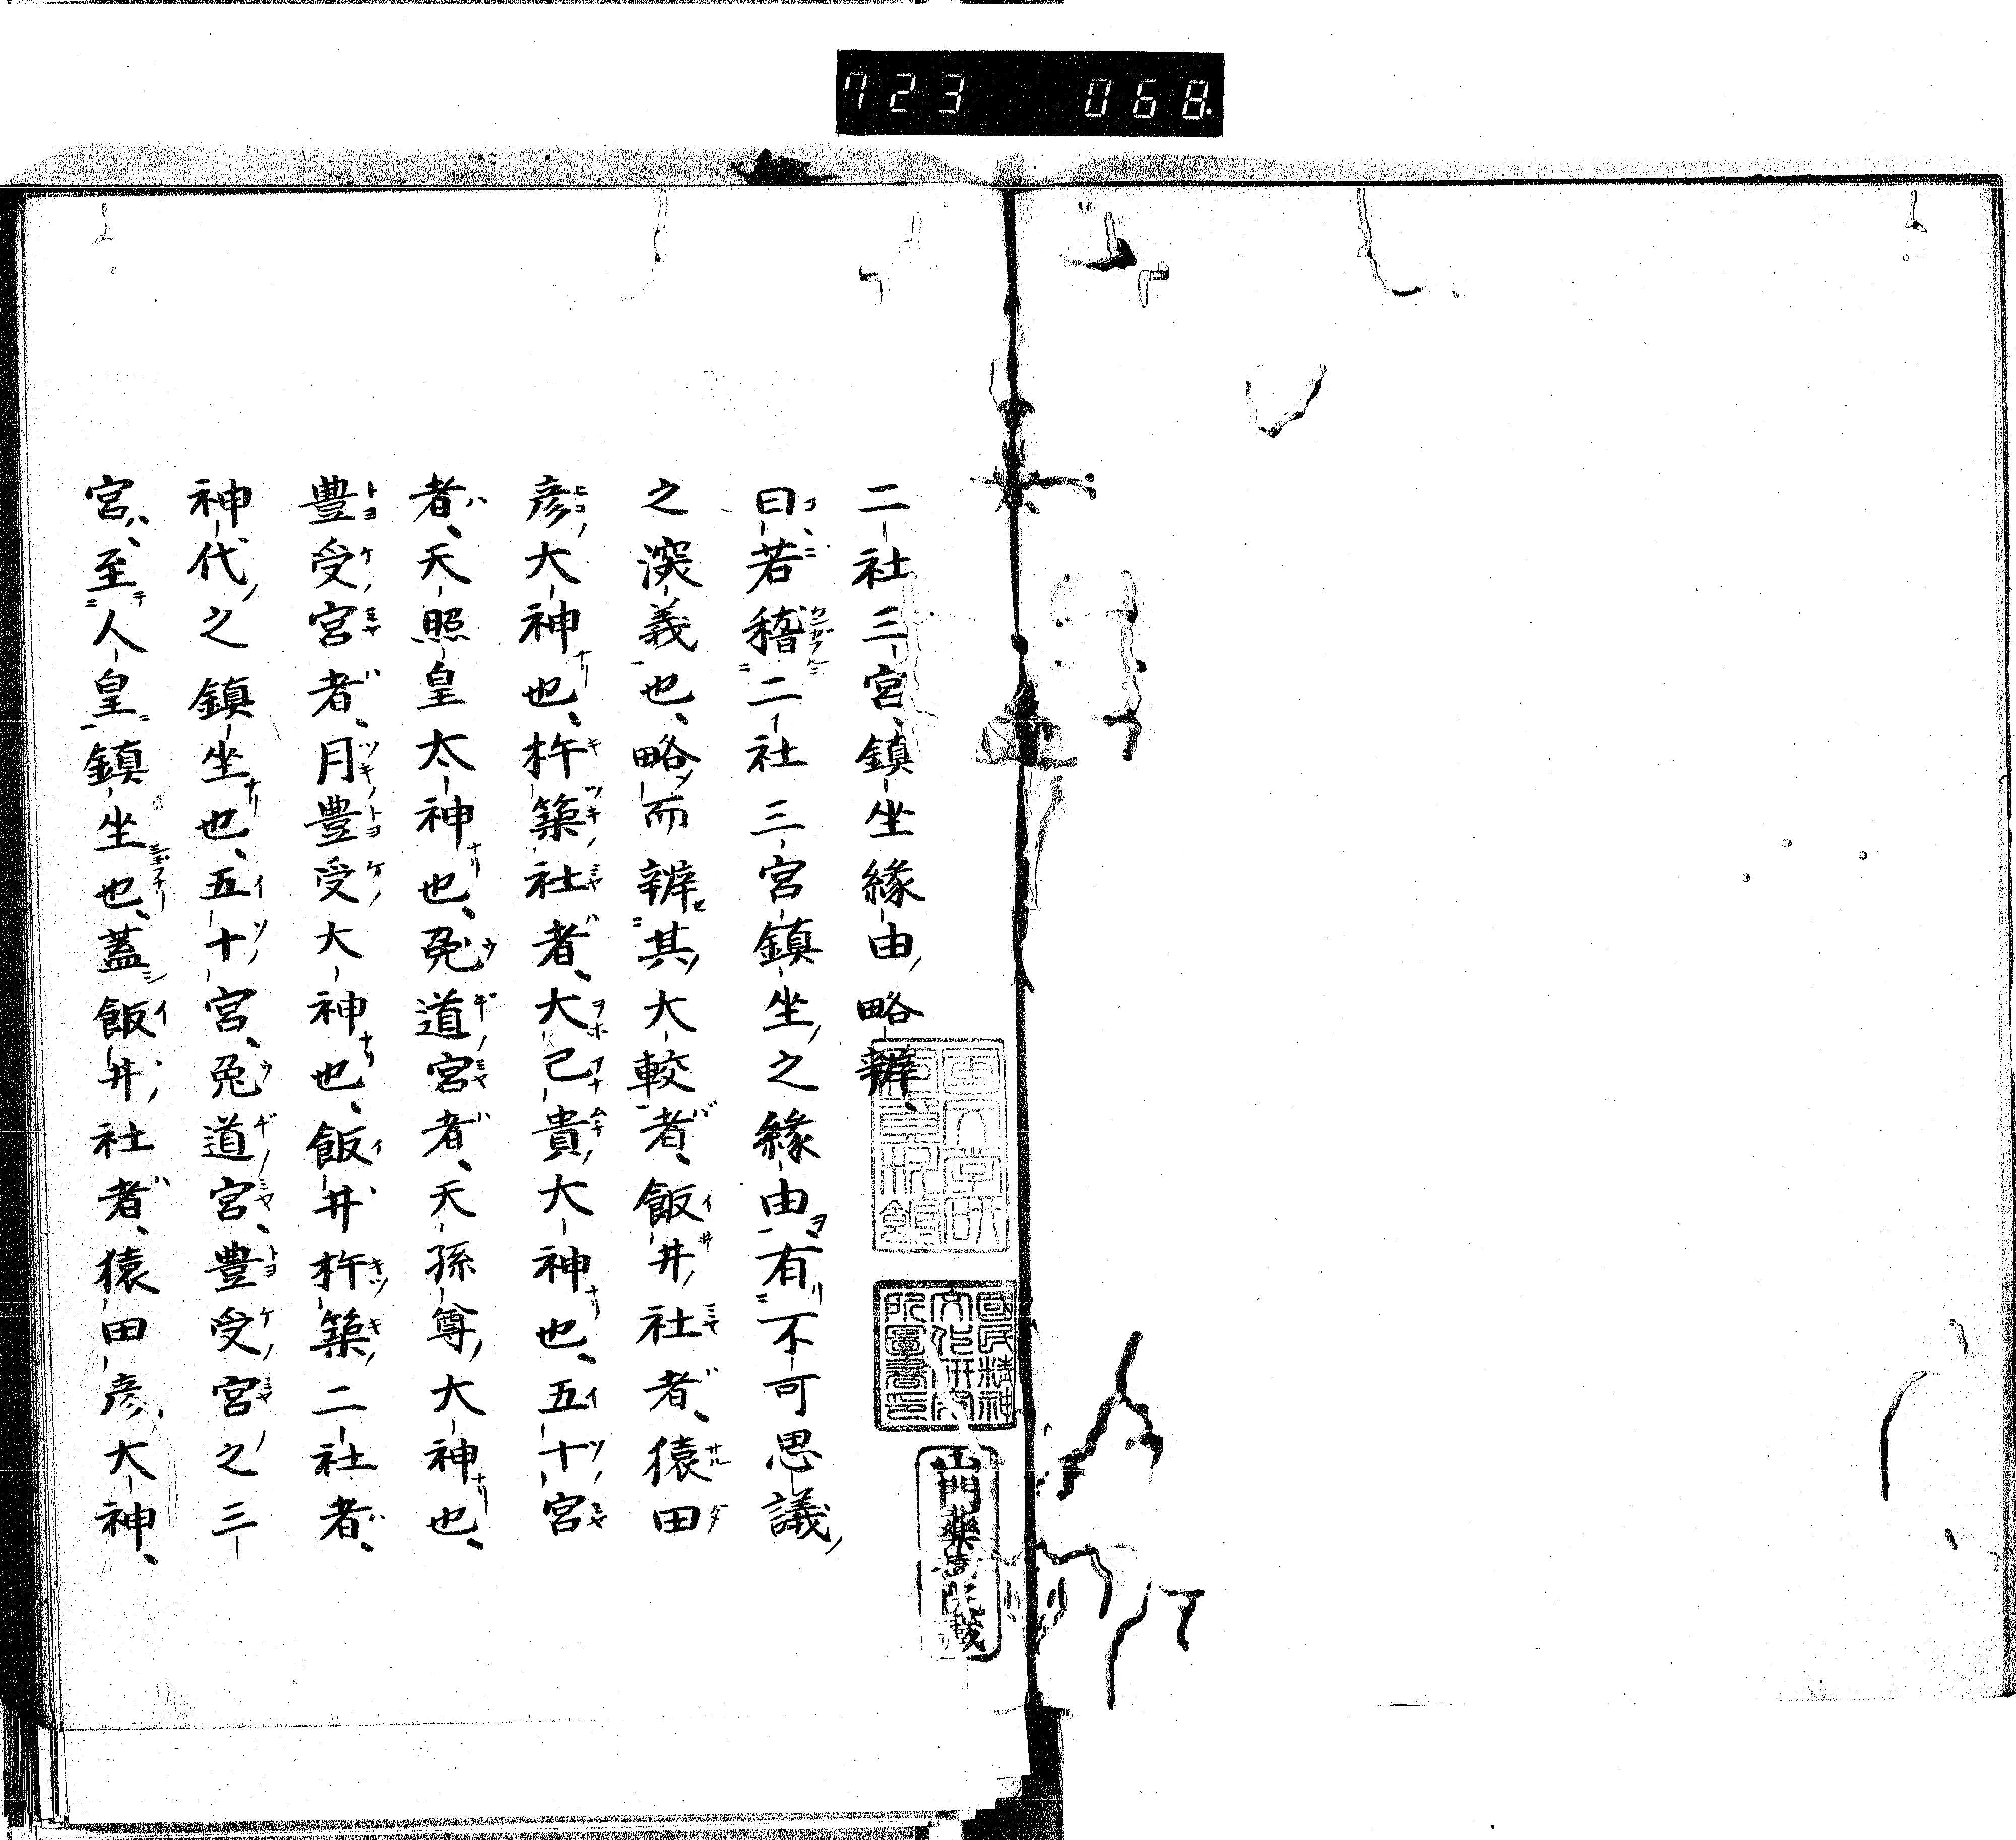 723 068.
二社三宮鎮坐緣由略辨、
曰若稽二社三宮鎮坐之緣由有不可思議
之深義也、略而辨其大較者、飯井社者、猿田
彦大神也、杵築社者、大己貴大神也、五十宮
者、天照皇太神也、兔道宮者、天孫尊大神也、
豊受宮者、月豊受大神也、飯井杵築二社者、
神代之鎮坐也、五十宮、兔道宮、豊受宮之三
宮、至人皇鎮坐也、蓋飯井社者、猿田彦大神、
國民精神
文化研究
所圖書印
山門藥樹院藏